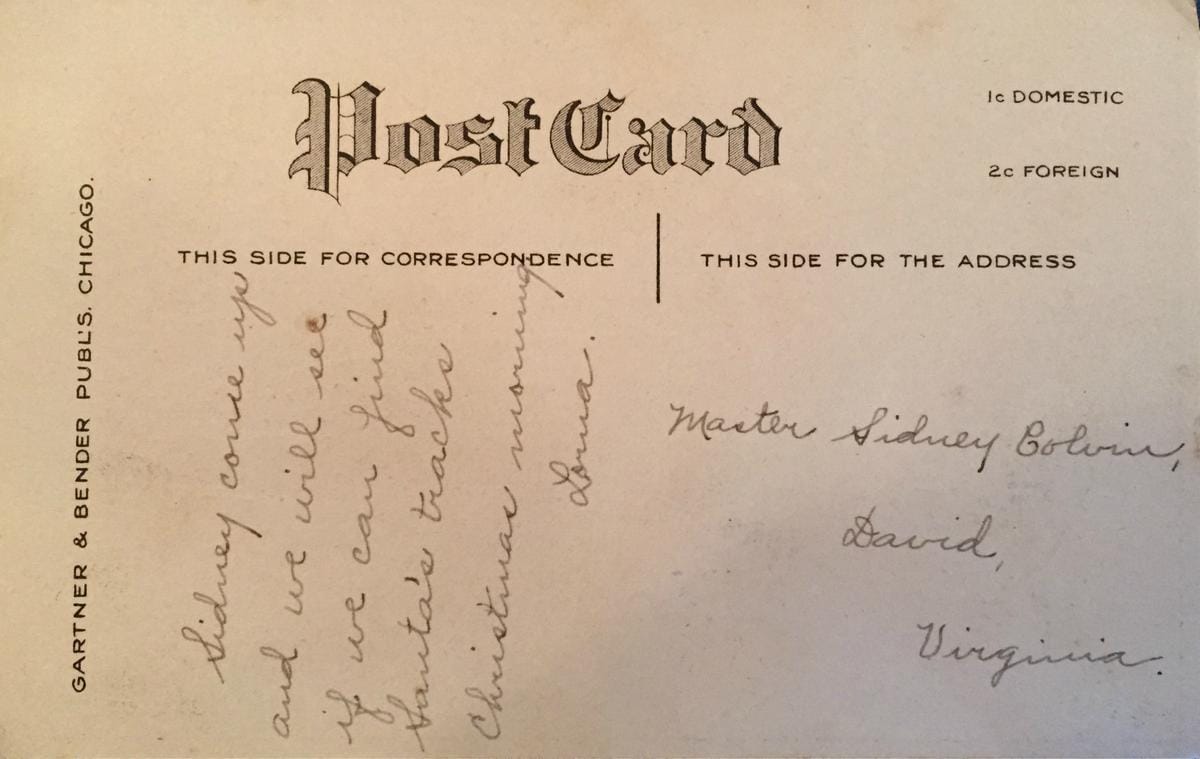 Post Card
1c DOMESTIC
2c FOREIGN
THIS SIDE FOR CORRESPONDENCE
THIS SIDE FOR THE ADDRESS
GARTNER & BENDER PUBL'S. CHICAGO.
Sidney come up
and we will see
if we can find
Santa's tracks
Christmas morning
Lorna.
Master Sidney Colvin,
David,
Virginia.